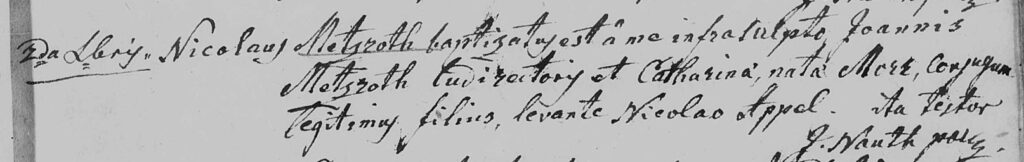 2da Xbris. Nicolaus Metzroth baptizatus est â me infrascripto, Joannis
Metzroth Ludirectoris et Catharinæ, natâ Morz, conjugum
legitimus filius, levante Nicolao Appel. ita testor
J. Nauth